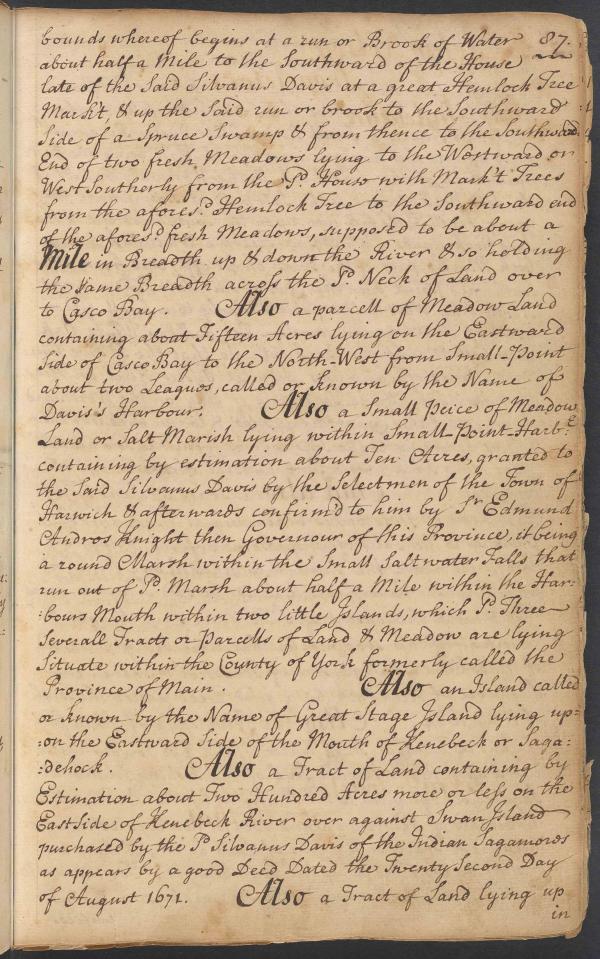 87.
bounds whereof begins at a run or Brook of Water
about half a Mile to the Southward of the House
late of the Said Silvanus Davis at a great Hemlock Tree
Mark't, & up the Said run or brook to the Southward
Side of a Spruce Swamp & from thence to the Southward
End of two fresh Meadows lying to the Westward or
West Southerly from the sd. House with Mark't Trees
from the afores.d Hemlock Tree to the Southward end
of the afores.d fresh Meadows, supposed to be about a
Mile in Breadth up & down the River & so holding
the same Breadth across the sd. Neck of Land over
to Casco Bay. Also a parcell of Meadow Land
containing about Fifteen Acres lying on the Eastward
Side of Casco Bay to the North-West from Small-Point
about two Leagues, called or known by the Name of
Davis's Harbour. Also a Small Peice of Meadow
Land or Salt Marish lying within Small-Point-Harb.r
containing by estimation about Ten Acres, granted to
the Said Silvanus Davis by the Selectmen of the Town of
Harwich & afterwards confirm'd to him by Sr Edmund
Andros Knight then Governour of this Province, it being
a round Marsh within the Small Saltwater Falls that
run out of sd. Marsh about half a Mile within the Har=
:bours Mouth within two little Islands, which sd. Three
Severall Tracts or Parcells of Land & Meadow are lying
Situate within the County of York formerly called the
Province of Main. Also an Island called
or known by the Name of Great Stage Island lying up=
:on the Eastward Side of the Mouth of Kenebeck or Saga=
:dehock. Also a Tract of Land containing by
Estimation about Two Hundred Acres more or less on the
East Side of Kenebeck River over against Swan Island
purchased by the sd Silvanus Davis of the Indian Sagamores
as appears by a good Deed Dated the Twenty Second Day
of August 1671. Also a Tract of Land lying up
in